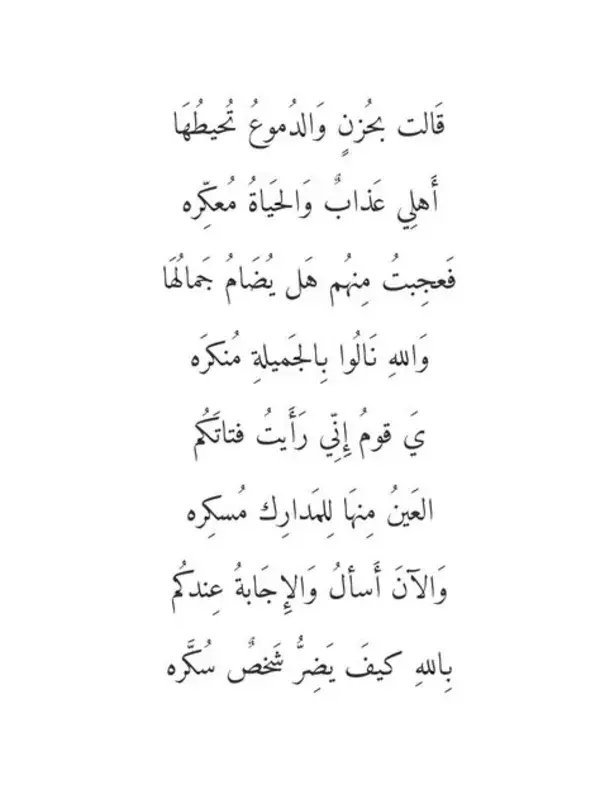 قَالت بحُزنٍ وَالدُموعُ تُحيطُهَا
أَهلِي عَذابٌ وَالحَياةُ مُعكِّره
فَعجِبتُ مِنهُم هَل يُضَامُ جَمالُهَا
وَاللهِ نَالُوا بِالجَميلةِ مُنكرَه
يَ قومُ إِنِّي رَأَيتُ فتاتَكُم
العَينُ مِنهَا لِلمَدارِك مُسكِره
وَالآنَ أَسألُ وَالإِجَابةُ عِندكُم
بِاللهِ كيفَ يَضِرُّ شَخصٌ سُكَّره